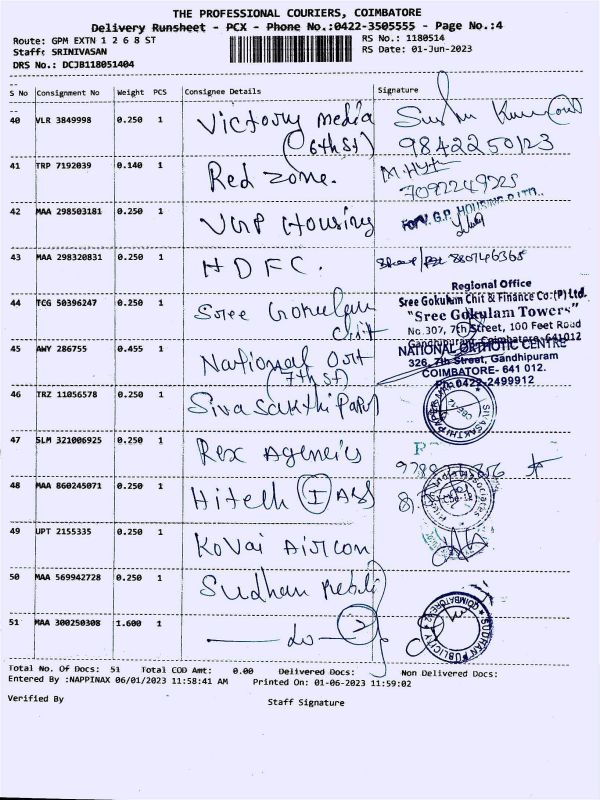 THE PROFESSIONAL COURIERS, COIMBATORE
Delivery Runsheet - PCX - Phone No.:0422-3505555 - Page No.:4
Route: GPM EXTN 1 2 6 8 ST RS No.: 1180514
Staff: SRINIVASAN RS Date: 01-Jun-2023
DRS No.: DCJB118051404
S No Consignment No Weight PCS Consignee Details Signature
40 VLR 3849998 0.250 1 Victory media
(6th St) 9842250123
41 TRP 7192039 0.140 1 Red zone.
7092249225
42 MAA 298503181 0.250 1 VGP Housing For V.G.P. HOUSING P LTD.
43 MAA 298320831 0.250 1 HDFC.
Regional Office
44 TCG 50396247 0.250 1 Sree Gokulam Sree Gokulam Chit & Finance Co.(P) Ltd.
chit "Sree Gokulam Towers"
No.307, 7th Street, 100 Feet Road
Gandhipuram, Coimbatore-641012
45 AWY 286755 0.455 1 National Ort NATIONAL ORTHOTIC CENTRE
(7th St) 326, 7th Street, Gandhipuram
COIMBATORE- 641 012.
Ph:0422-2499912
46 TRZ 11056578 0.250 1 Siva Sakthi Paper SIVASAKTHI PAPER
47 SLM 321006925 0.250 1 Rex Agencies
48 MAA 860245071 0.250 1 Hitech I Ass
49 UPT 2155335 0.250 1 Kovai Aircon
50 MAA 569942728 0.250 1 Sudhan Publi
51 MAA 300250308 1.600 1 do 2 SUDHAN PUBLICITY COIMBATORE
Total No. Of Docs: 51 Total COD Amt: 0.00 Delivered Docs: Non Delivered Docs:
Entered By :NAPPINAX 06/01/2023 11:58:41 AM Printed On: 01-06-2023 11:59:02
Verified By Staff Signature